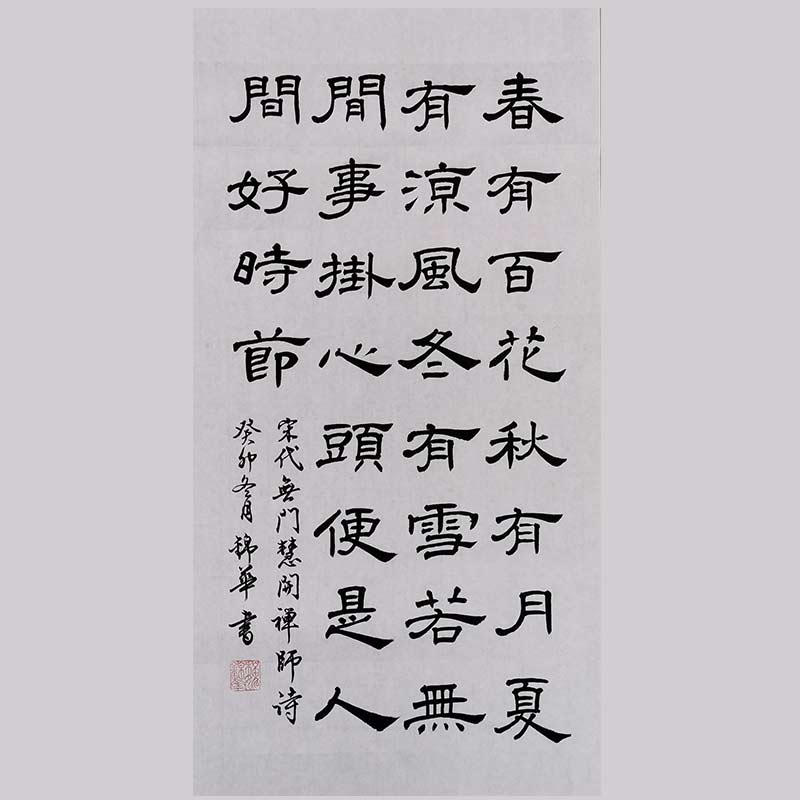 春有百花秋有月夏
有涼風冬有雪若無
閒事掛心頭便是人
間好時節
宋代無門慧開禪師詩
癸卯冬月錦華書